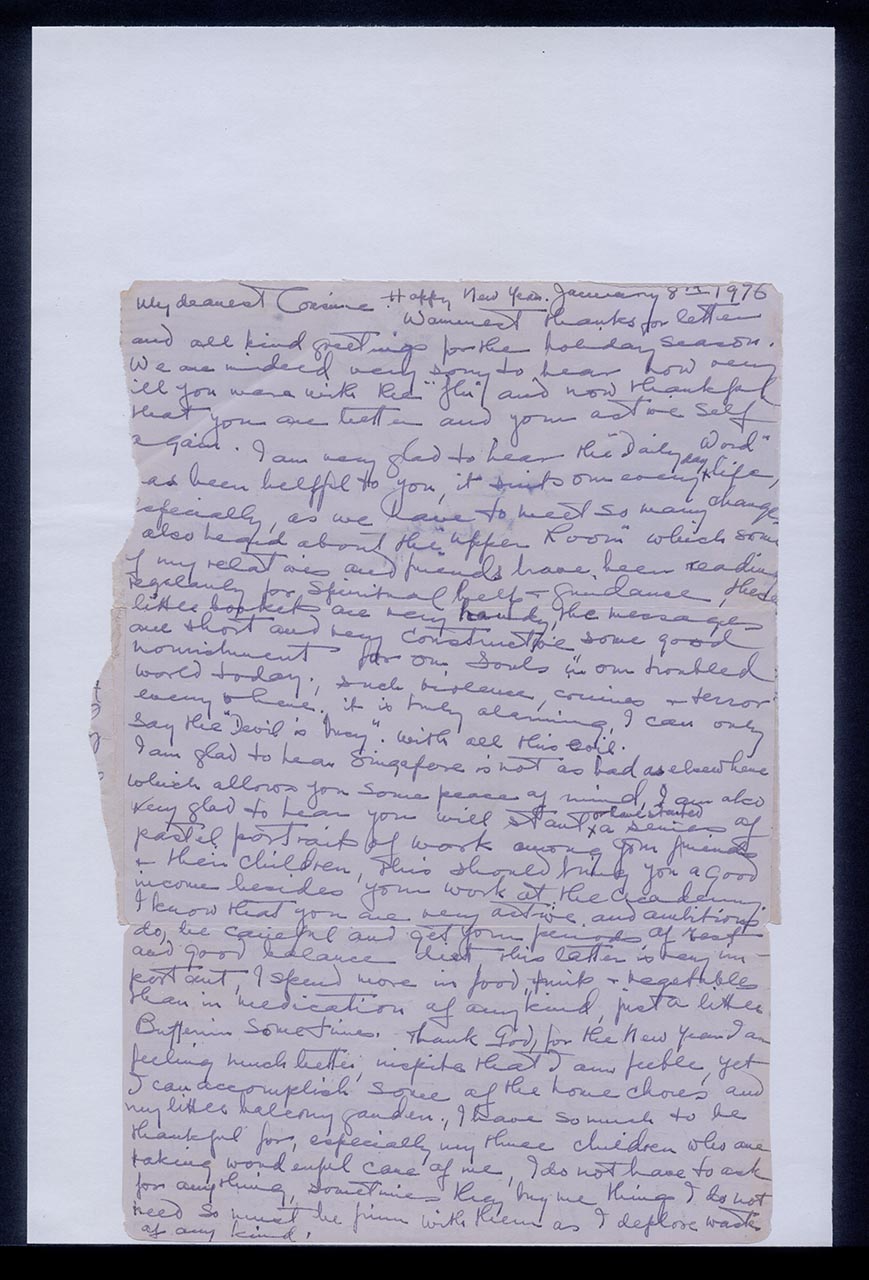 My dearest Corinne Happy New Year. January 8th 1976
Warmest thanks for letter
and all kind greetings for the holiday season.
We are indeed very sorry to hear how very
ill you were with the "flu" and now thankful
that you are better and your active self
again. I am very glad to hear the "Daily Word"
as been helpful to you, it suits our every day life,
specially, as we have to meet so many changes
also heard about the "Upper Room" which some
of my relatives and friends have been reading
regularly for spiritual help + guidance, these
little booklets are very handy, the messages
are short and very constructive some good
nourishment for our souls in our troubled
world today, such violence, crimes + terror
everywhere. it is truly alarming, I can only
say the "Devil is busy". with all this evil.
I am glad to hear Singapore is not as bad as elsewhere
which allows you some peace of mind, I am also
very glad to hear you will start or have started a series of
pastel portraits of work among your friends
+ their children, this should bring you a good
income besides your work at the Academy.
I know that you are very active and ambitious
do, be careful and get your periods of rest
and good balance diet this latter is very im-
portant, I spend more in food, fruits + vegetables
than in medication of any kind, just a little
Bufferin sometimes. Thank God, for the New Year I am
feeling much better, inspite that I am feeble, yet
I can accomplish some of the home chores and
my little balcony garden., I have so much to be
thankful for, especially my three children who are
taking wonderful care of me, I do not have to ask
for anything, sometimes they buy me things I do not
need so must be firm with them as I deplore waste
of any kind.